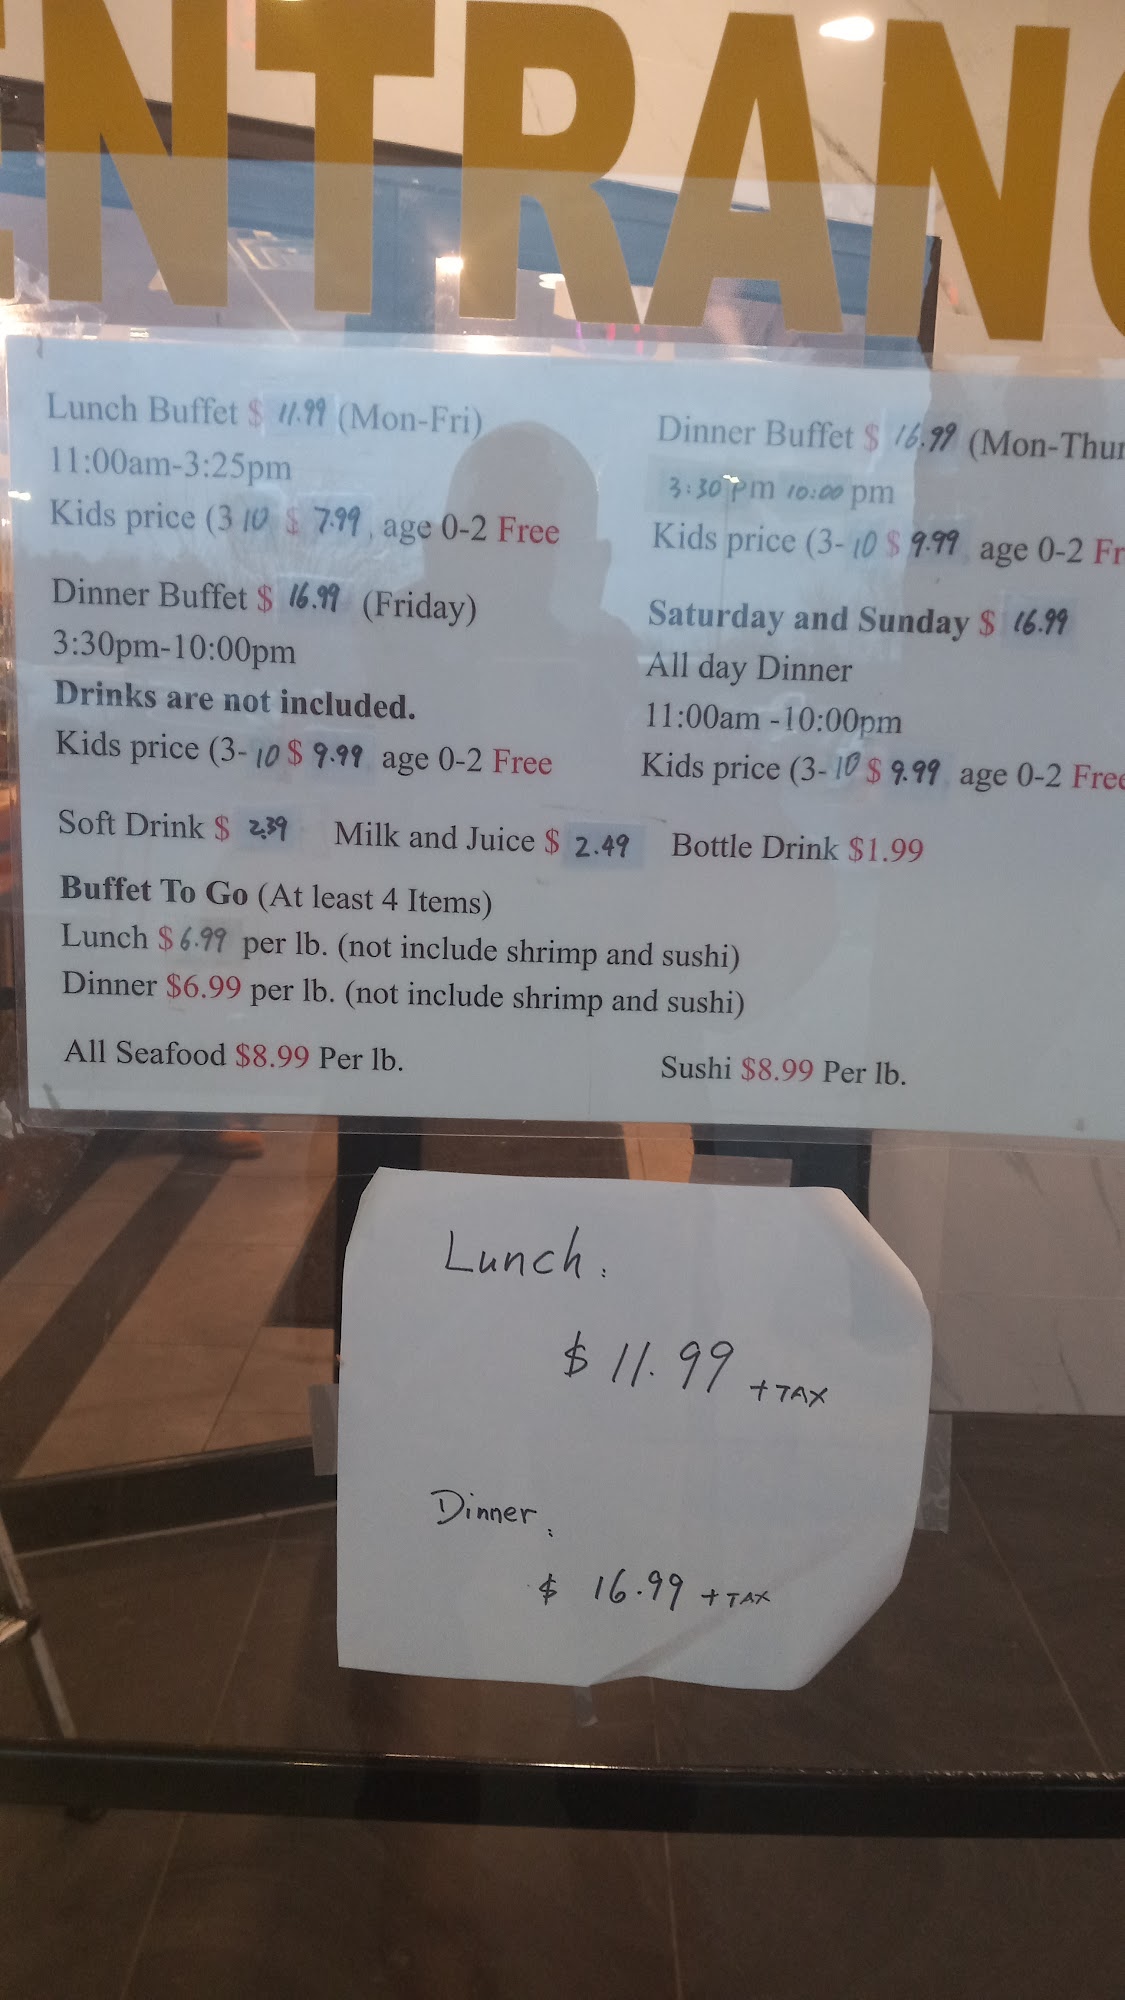 ENTRANC
Lunch Buffet $ 11.99 (Mon-Fri)
11:00am-3:25pm
Kids price (3 10 $ 7.99, age 0-2 Free
Dinner Buffet $ 16.99 (Friday)
3:30pm-10:00pm
Drinks are not included.
Kids price (3- 10 $ 9.99 age 0-2 Free
Dinner Buffet $ 16.99 (Mon-Thur
3:30 pm 10:00 pm
Kids price (3- 10 $ 9.99 age 0-2 Fr
Saturday and Sunday $ 16.99
All day Dinner
11:00am -10:00pm
Kids price (3- 10 $ 9.99 age 0-2 Free
Soft Drink $ 2.39 Milk and Juice $ 2.49 Bottle Drink $1.99
Buffet To Go (At least 4 Items)
Lunch $ 6.99 per lb. (not include shrimp and sushi)
Dinner $6.99 per lb. (not include shrimp and sushi)
All Seafood $8.99 Per lb. Sushi $8.99 Per lb.
Lunch:
$ 11.99 + TAX
Dinner:
$ 16.99 + TAX